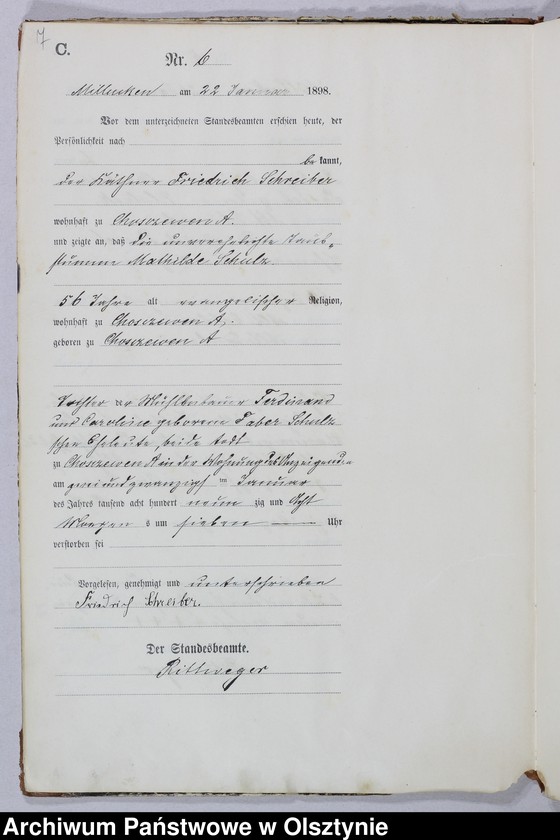 7
C.
Nr. 6
Millucken am 22 Januar 1898.
Vor dem unterzeichneten Standesbeamten erschien heute, der
Persönlichkeit nach
be kannt,
der Käthner Friedrich Schreiber
wohnhaft zu Choszewen A.
und zeigte an, daß die unverehelichte taub-
stumme Mathilde Schulz
56 Jahre alt evangelischer Religion,
wohnhaft zu Choszewen A.
geboren zu Choszewen A
Tochter der Mühlenbauer Ferdinand
und Caroline geborene Faber Schulz
schen Eheleute, beide todt
zu Choszewen A in der Wohnung des Anzeigenden
am zweiundzwanzigst en Januar
des Jahres tausend acht hundert neun zig und Acht
Morgen s um sieben Uhr
verstorben sei
Vorgelesen, genehmigt und unterschrieben
Friedrich Schreiber.
Der Standesbeamte.
Rittweger
Archiwum Państwowe w Olsztynie